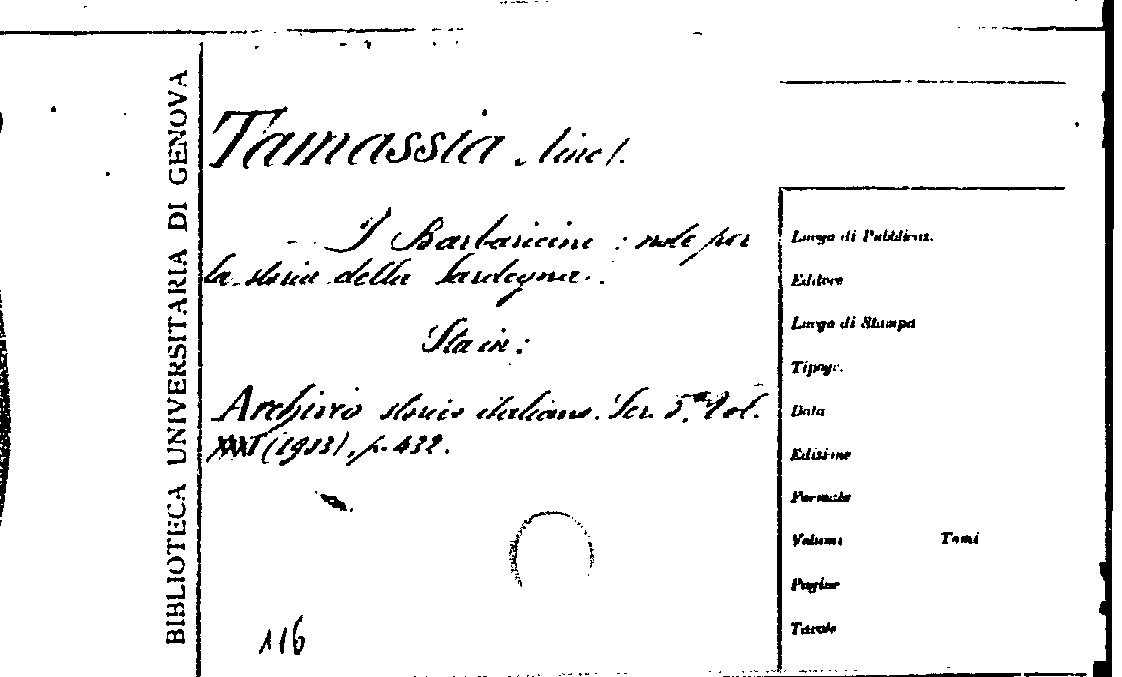 BIBLIOTECA UNIVERSITARIA DI GENOVA
Tamassia Nino.
I Barbaricini: note per
la storia della Sardegna.
Sta in:
Archivio storico italiano. Ser. 5ª, Vol.
(1903), p. 432.
116
Luogo di Pubblicaz.
Editore
Luogo di Stampa
Tipogr.
Data
Edizione
Formato
Volumi Tomi
Pagine
Tavole